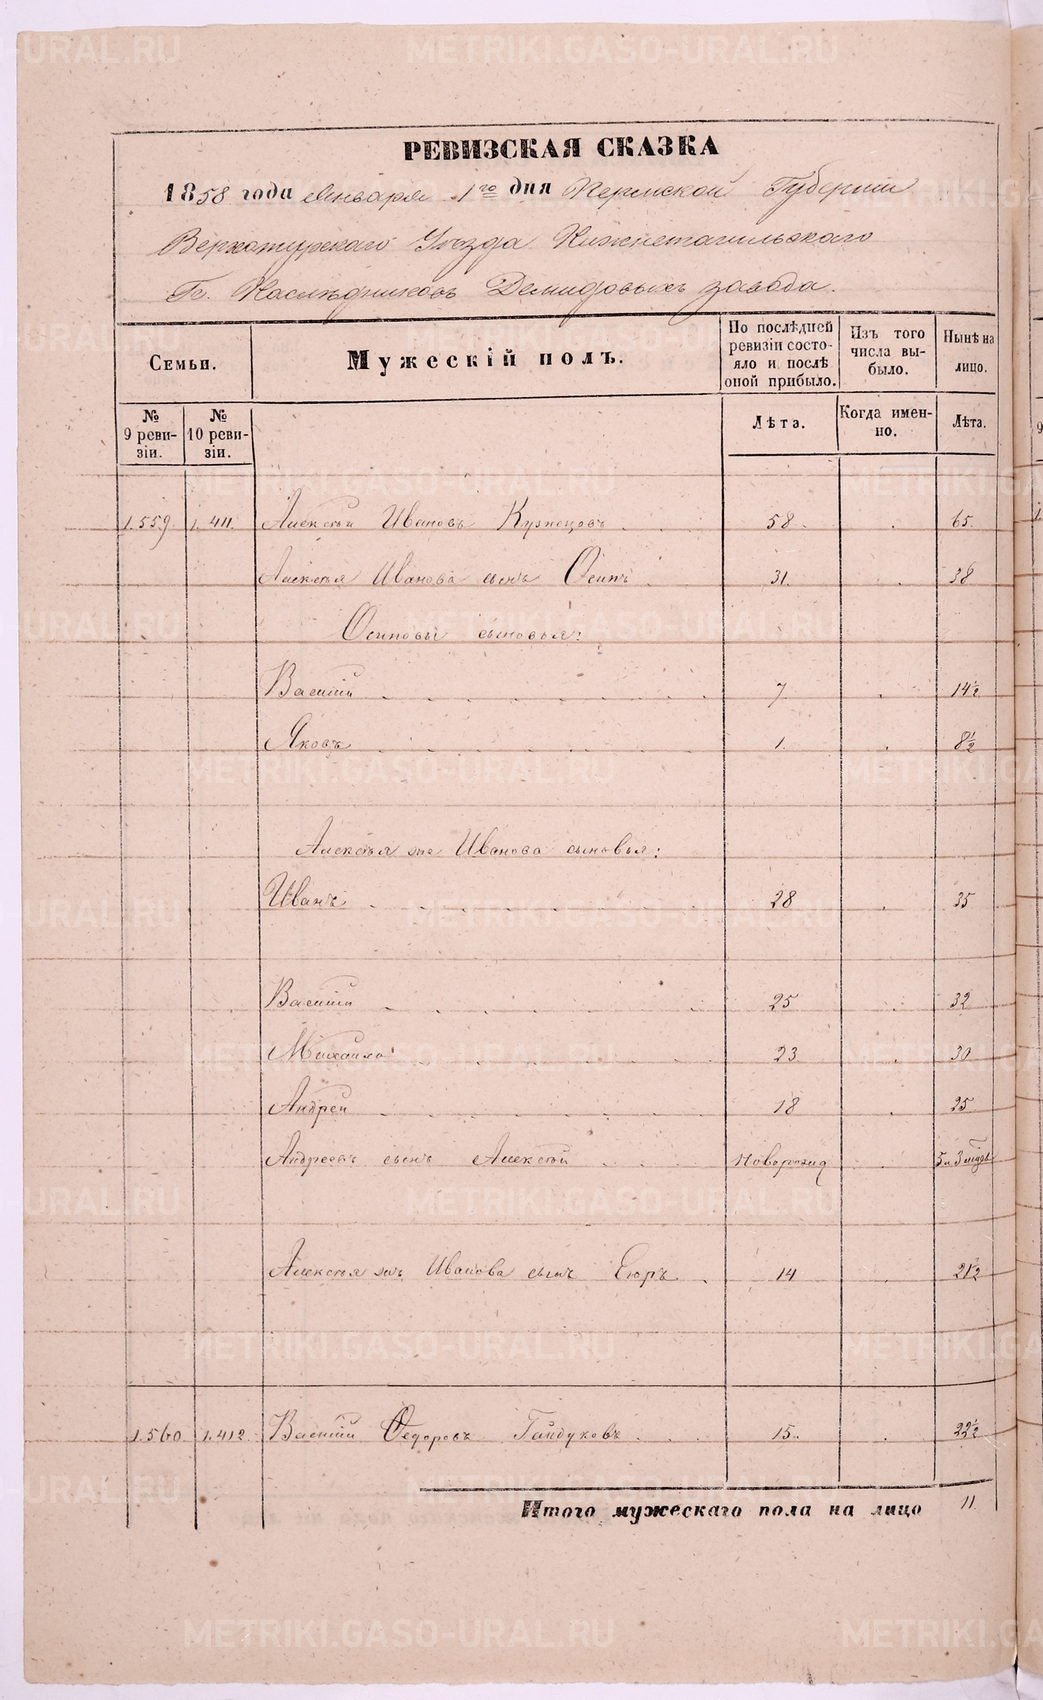 РЕВИЗСКАЯ СКАЗКА
1858 года Января 1го дня Пермской Губернии
Верхотурскаго Уѣзда Нижнетагильскаго
Гг. Наслѣдниковъ Демидовыхъ завода.
Семьи.
Мужескій полъ.
По послѣдней ревизіи состояло и послѣ оной прибыло.
Изъ того числа выбыло.
Нынѣ на лицо.
№ 9 ревизіи.
№ 10 ревизіи.
Лѣта.
Когда именно.
Лѣта.
1.559. 1.411. Алексѣй Ивановъ Кузнецовъ 58. 65.
Алексѣя Иванова сынъ Осипъ 31. 38
Осиповы сыновья:
Василій 7 14½
Яковъ 1. 8½
Алексѣя же Иванова сыновья:
Иванъ 28 35
Василій 25 32
Михайло 23 30
Андрей 18 25
Андреевъ сынъ Алексѣй Новорожд 5 и 3 мѣсяц
Алексѣя же Иванова сынъ Егоръ 14 21½
1.560. 1.412. Василій Ѳедоровъ Гайдуковъ 15. 22½
Итого мужескаго пола на лицо 11.
METRIKI.GASO-URAL.RU